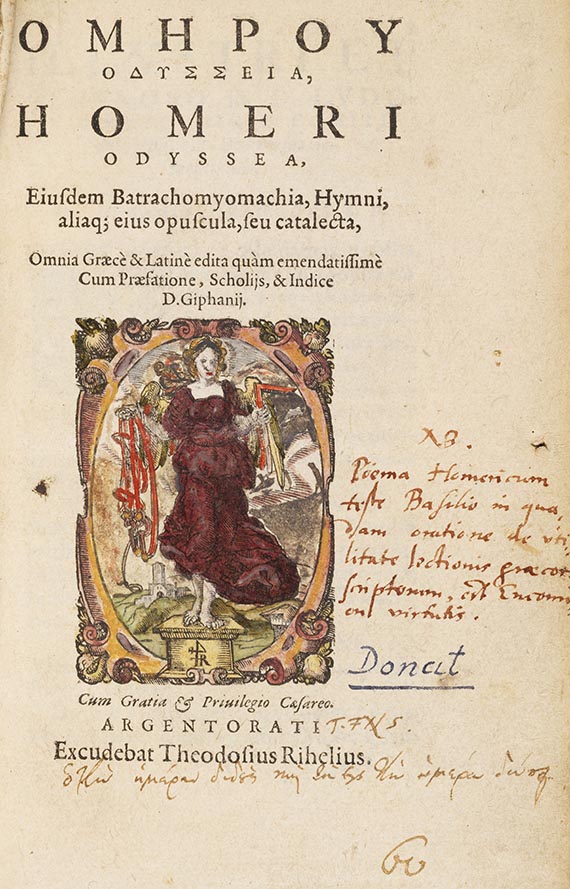 ΟΜΗΡΟΥ
ΟΔΥΣΣΕΙΑ,
HOMERI
ODYSSEA,
Eiuſdem Batrachomyomachia, Hymni,
aliaq; eius opuſcula, ſeu catalecta,
Omnia Græcè & Latinè edita quàm emendatiſſimè
Cum Præfatione, Scholijs, & Indice
D. Giphanij.
NB.
Poema Homericum
teste Basilio in qua
dam oratione de uti
litate lectionis græcor
scriptorum, est Encomi
on virtutis.
Donat
R
Cum Gratia & Priuilegio Cæſareo.
ARGENTORATI
Excudebat Theodoſius Rihelius.